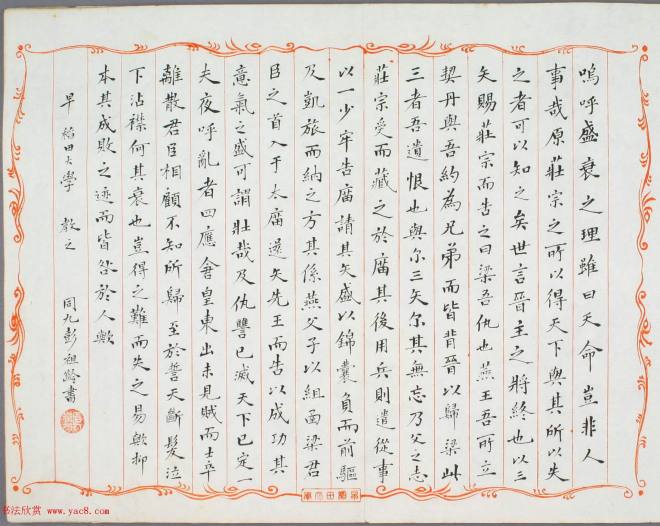 嗚呼盛衰之理雖曰天命豈非人
事哉原莊宗之所以得天下與其所以失
之者可以知之矣世言晉主之將終也以三
矢賜莊宗而告之曰梁吾仇也燕王吾所立
契丹與吾約為兄弟而皆背晉以歸梁此
三者吾遺恨也與尔三矢尔其無忘乃父之志
莊宗受而藏之於廟其後用兵則遣從事
以一少牢告廟請其矢盛以錦囊負而前驅
及凱旅而納之方其係燕父子以組函梁君
臣之首入于太廟還矢先王而告以成功其
意氣之盛可謂壯哉及仇讐已滅天下已定一
夫夜呼亂者四應倉皇東出未見賊而士卒
離散君臣相顧不知所歸至於誓天斷髮泣
下沾襟何其衰也豈得之難而失之易歟抑
本其成敗之迹而皆咎於人歟
早稻田大學 教之
同九彭祖齡書
書法欣赏 www.yac8.com